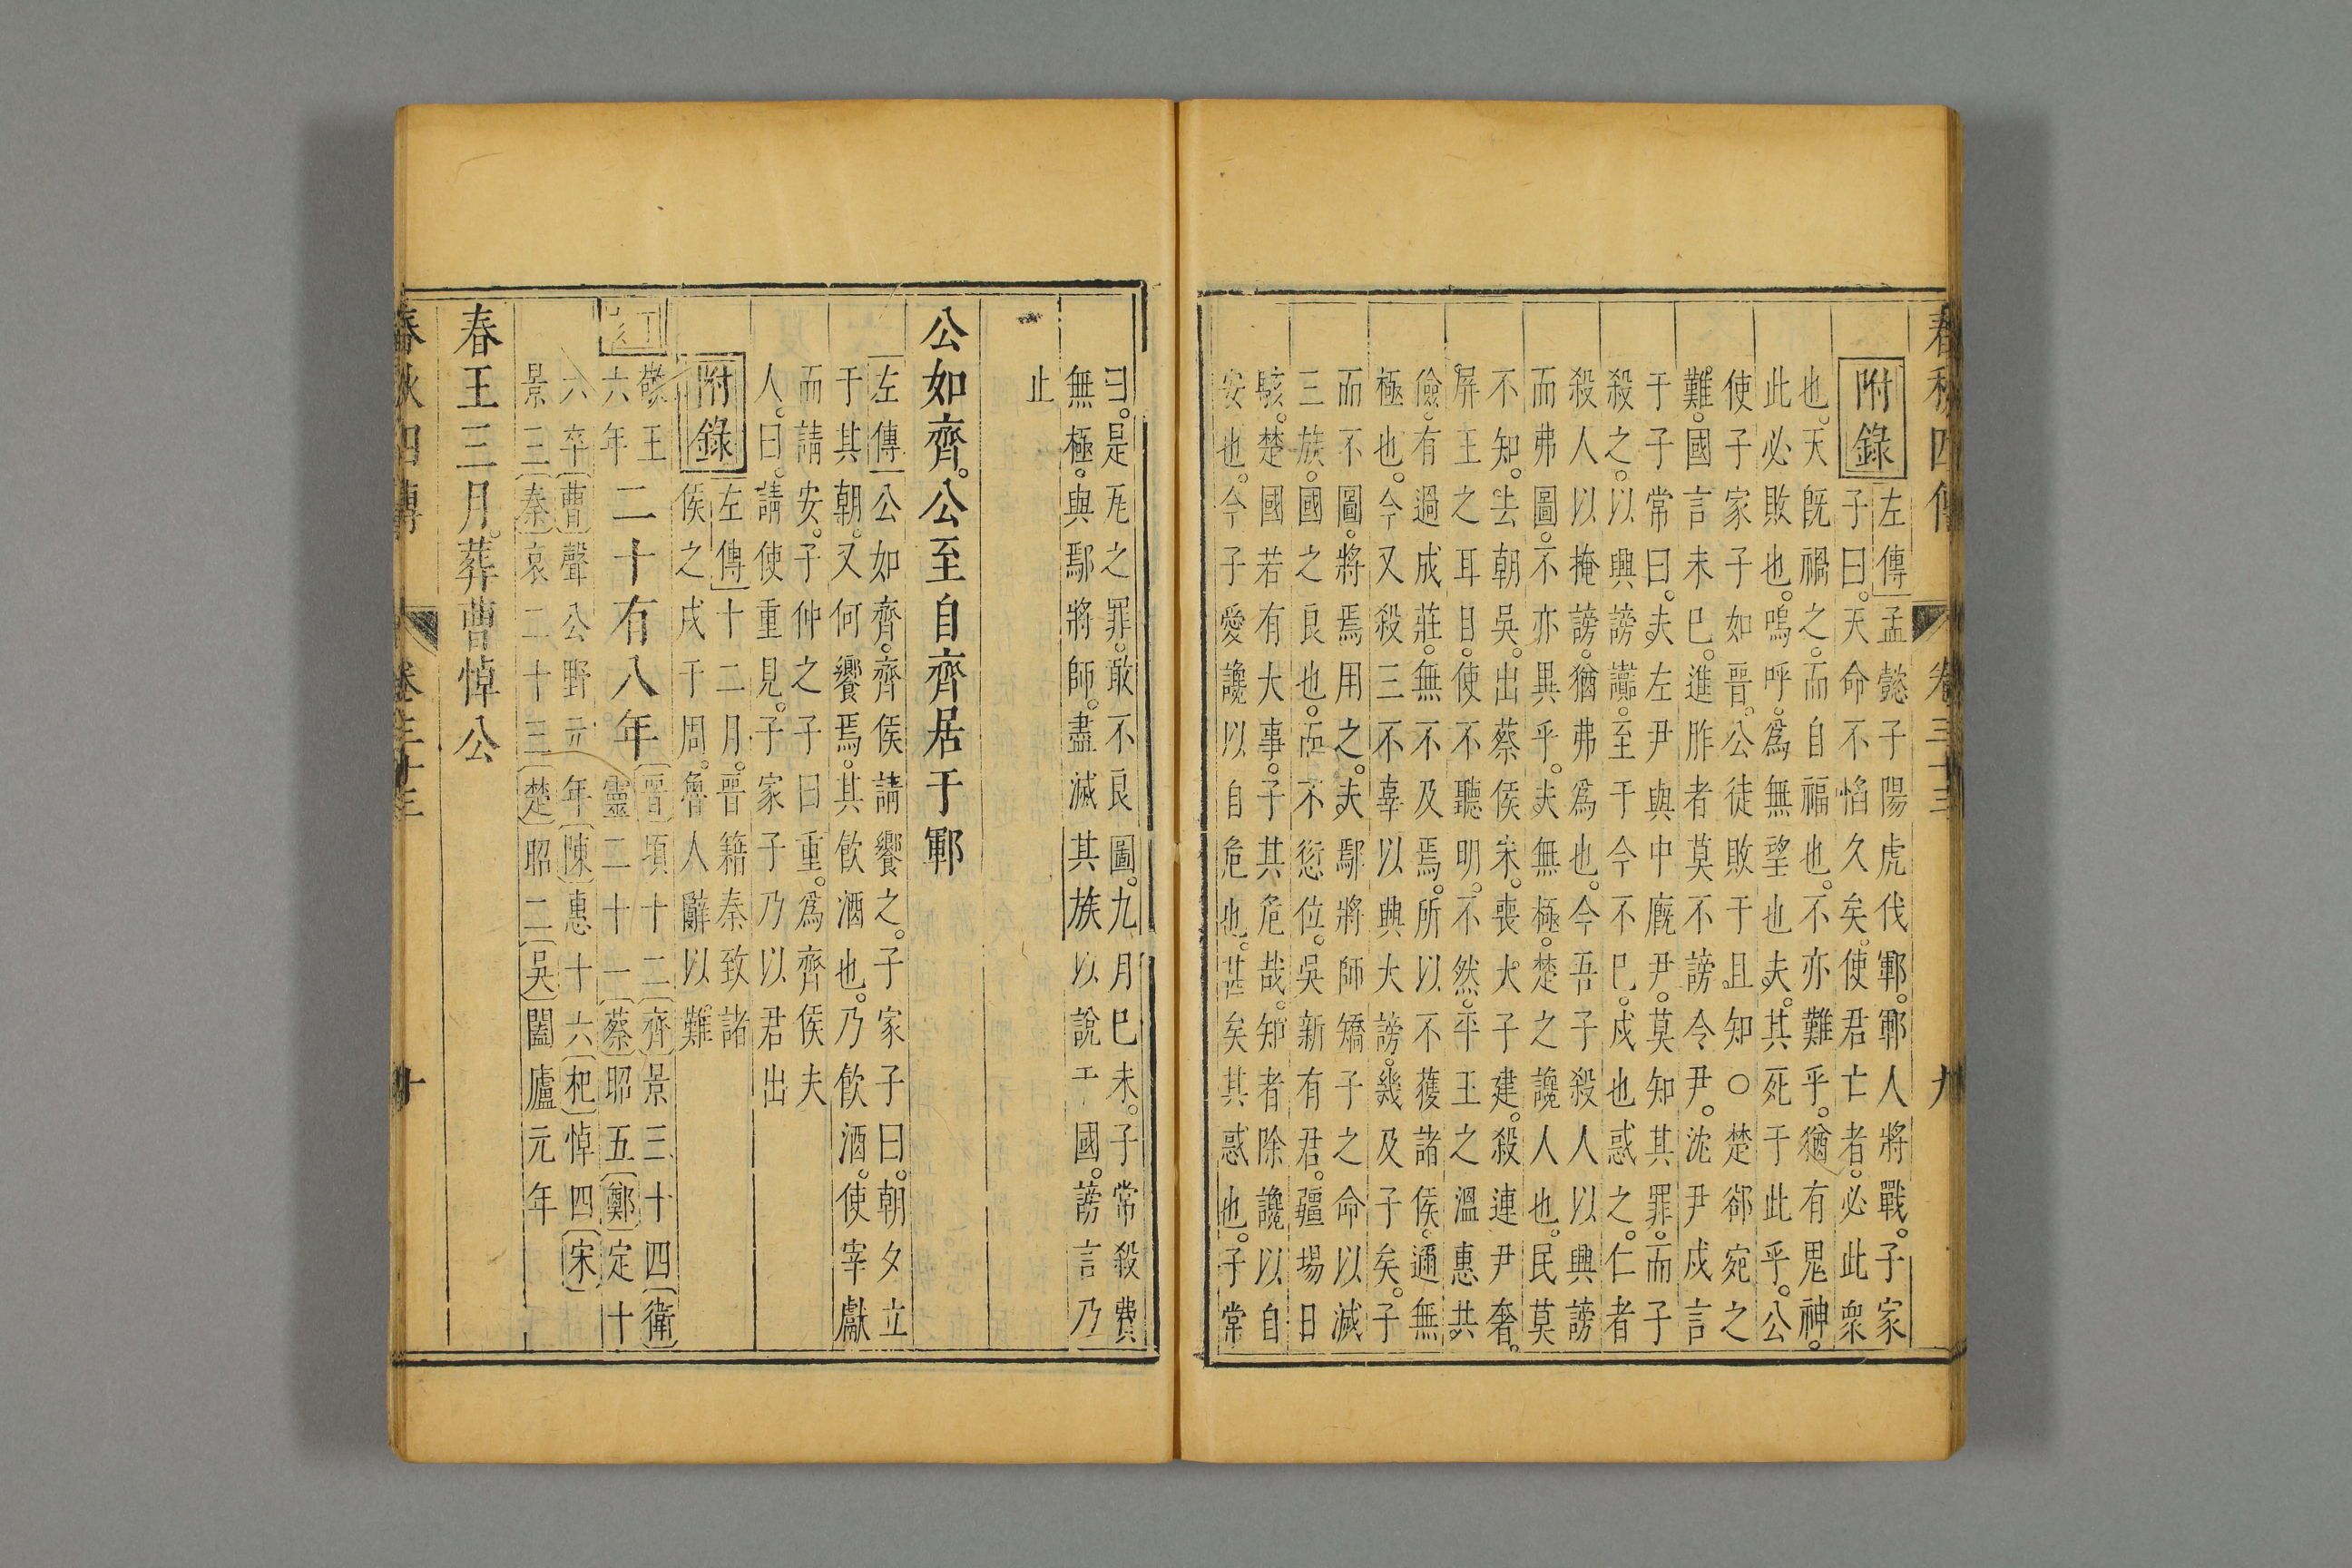 春秋四傳 卷三十三 九
附錄
左傳孟懿子陽虎伐鄆。鄆人將戰。子家
子曰。天命不慆久矣。使君亡者。必此眾
也。天既禍之。而自福也。不亦難乎。猶有鬼神。
此必敗也。嗚呼。為無望也夫。其死于此乎。公
使子家子如晉。公徒敗于且知○楚郤宛之
難。國言未已。進胙者莫不謗令尹。沈尹戍言
于子常曰。夫左尹與中廄尹。莫知其罪。而子
殺之。以興謗讟。至于今不已。戍也惑之。仁者
殺人以掩謗。猶弗為也。今吾子殺人以興謗
而弗圖。不亦異乎。夫無極。楚之讒人也。民莫
不知。去朝吳。出蔡侯朱。喪大子建。殺連尹奢。
屏王之耳目。使不聰明。不然。平王之溫惠共
儉。有過成莊。無不及焉。所以不獲諸侯。邇無
極也。今又殺三不辜以興大謗。幾及子矣。子
而不圖。將焉用之。夫鄢將師矯子之命以滅
三族。國之良也。而不愆位。吳新有君。疆場日
駭。楚國若有大事。子其危哉。知者除讒以自
安也。今子愛讒以自危也。甚矣其惑也。子常
曰。是瓦之罪。敢不良圖。九月己未。子常殺費
無極。與鄢將師。盡滅其族以說于國。謗言乃
止
公如齊。公至自齊居于鄆
左傳公如齊。齊侯請饗之。子家子曰。朝夕立
于其朝。又何饗焉。其飲酒也。乃飲酒。使宰獻
而請安。子仲之子曰重。為齊侯夫
人。曰。請使重見。子家子乃以君出
附錄
左傳十二月。晉籍秦致諸
侯之戍于周。魯人辭以難
敬王
六年
二十有八年
晉頃十二齊景三十四衛
靈二十一蔡昭五鄭定十
六卒曹聲公野元年陳惠十六杞悼四宋
景三秦哀二十三楚昭二吳闔廬元年
春王三月。葬曹悼公
春秋四傳 卷三十三 十